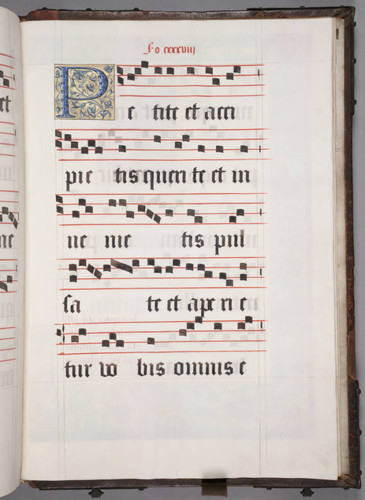 Fo xxxxviii
Pe tite et acci
pie tis quen te et in
ue nie tis pul
sa te et ape ri e
tur vo bis omnis e